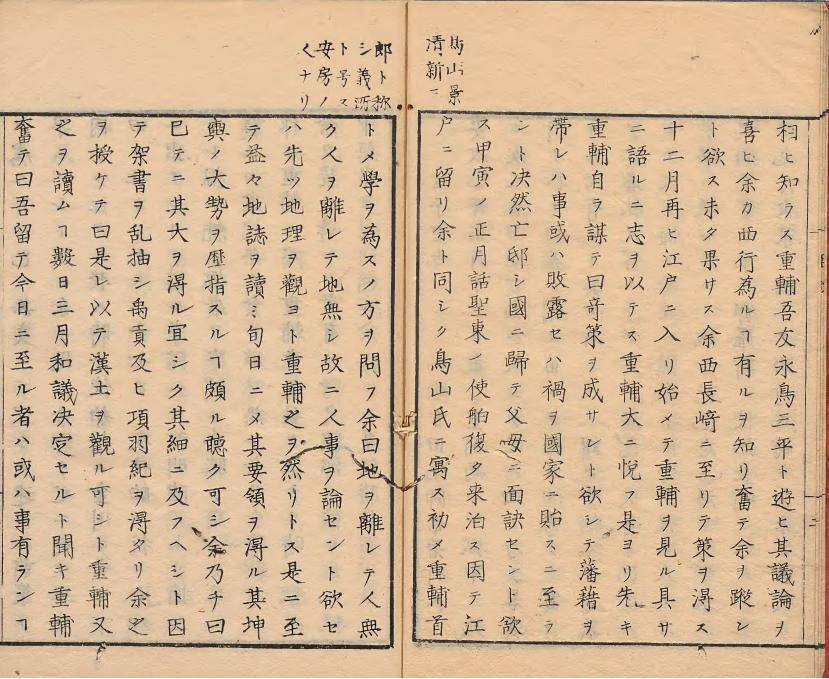 鳥山景
清新三
郎ト称
シ義所
ト号ス
安房ノ
人ナリ
相ヒ知ラス重輔吾友永鳥三平ト遊ヒ其議論ヲ
喜ヒ余カ西行為ルヿ有ルヲ知リ奮テ余ヲ蹤シ
ト欲ス未タ果サス余西長﨑ニ至リテ策ヲ淂ス
十二月再ヒ江戸ニ入リ始メテ重輔ヲ見ル具サ
ニ語ルニ志ヲ以テス重輔大ニ悦フ是ヨリ先キ
重輔自ラ謀テ曰奇策ヲ成サント欲シテ藩籍ヲ
帶レハ事或ハ敗露セハ禍ヲ國家ニ貽スニ至ラ
ント决然亡邸シ國ニ歸テ父母ニ面訣セント欲
ス甲寅ノ正月話聖東ノ使舶復タ来泊ス因テ江
戸ニ留リ余ト同シク鳥山氏ニ寓ス初メ重輔首
トメ學ヲ為スノ方ヲ問フ余曰地ヲ離レテ人無
ク人ヲ離レテ地無シ故ニ人事ヲ論セント欲セ
ハ先ツ地理ヲ觀ヨト重輔之ヲ然リトス是ニ至
テ益々地誌ヲ讀ミ旬日ニメ其要領ヲ得ル其坤
輿ノ大勢ヲ歴指スルヿ頗ル聴ク可シ余乃チ曰
已テニ其大ヲ得ル宜シク其細ニ及フヘシト因
テ架書ヲ乱抽シ禹貢及ヒ項羽紀ヲ淂タリ余之
ヲ授ケテ曰是レ以テ漢土ヲ觀ル可シト重輔又
之ヲ讀ムヿ數日三月和議决定セルト聞キ重輔
奮テ曰吾留テ今日ニ至ル者ハ或ハ事有ランヿ